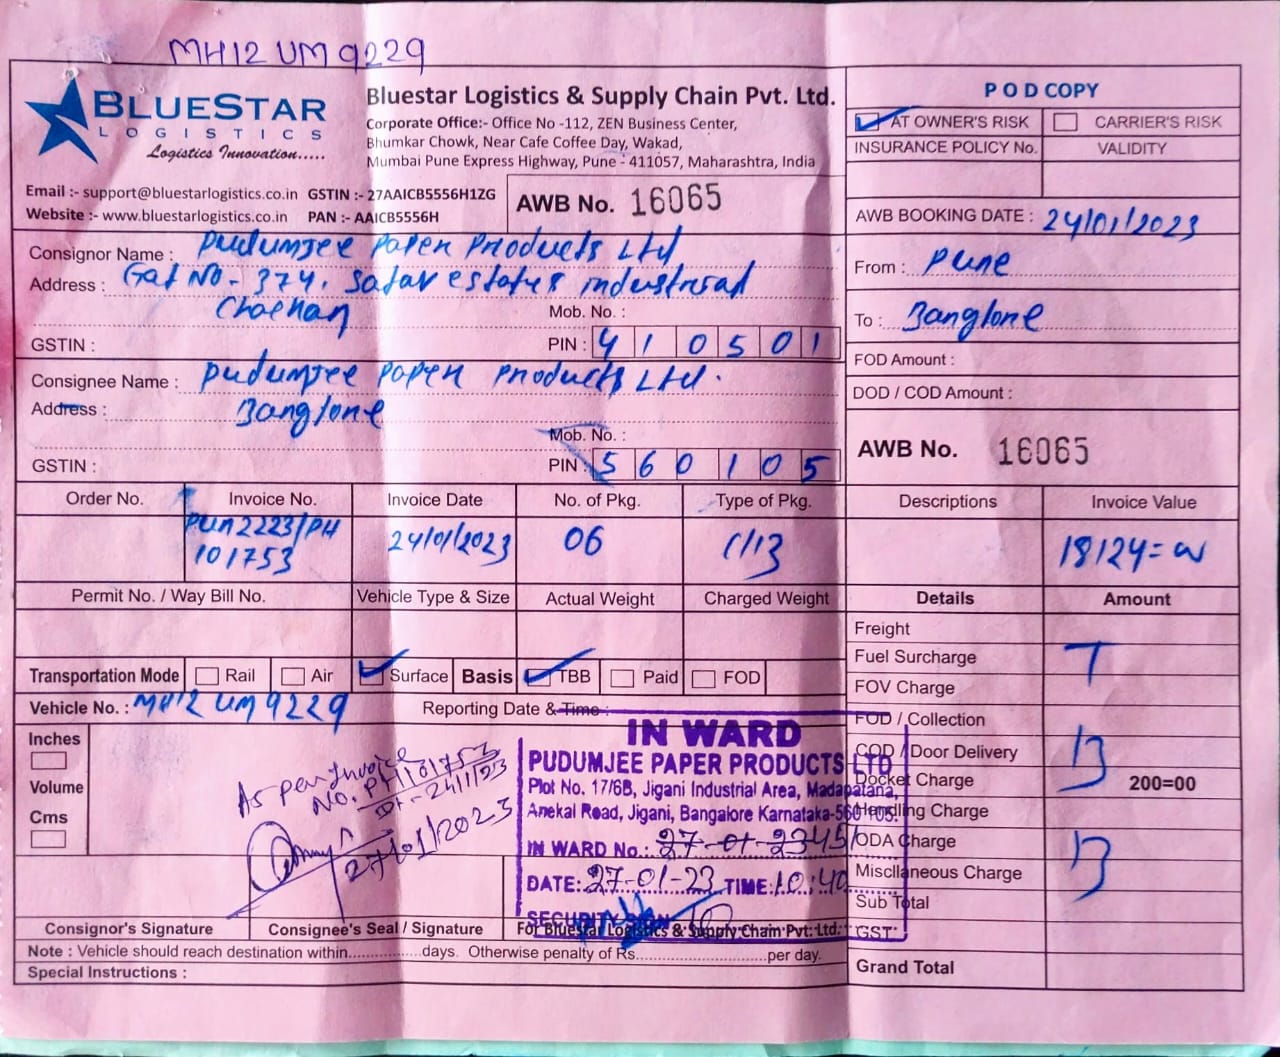 MH12 UM 9229
BLUESTAR
LOGISTICS
Logistics Innovation.....
Bluestar Logistics & Supply Chain Pvt. Ltd.
Corporate Office:- Office No -112, ZEN Business Center,
Bhumkar Chowk, Near Cafe Coffee Day, Wakad,
Mumbai Pune Express Highway, Pune - 411057, Maharashtra, India
Email :- support@bluestarlogistics.co.in GSTIN :- 27AAICB5556H1ZG
Website :- www.bluestarlogistics.co.in PAN :- AAICB5556H
AWB No. 16065
POD COPY
AT OWNER'S RISK CARRIER'S RISK
INSURANCE POLICY No. VALIDITY
AWB BOOKING DATE : 24/01/2023
From : Pune
To : Banglore
FOD Amount :
DOD / COD Amount :
AWB No. 16065
Consignor Name : Pudumjee Paper Products Ltd
Address : Gat No - 374, Satav estates industrial
Chakan
Mob. No. :
GSTIN : PIN : 410501
Consignee Name : Pudumjee Paper Products Ltd.
Address : Banglore
Mob. No. :
GSTIN : PIN : 560105
Order No. Invoice No. Invoice Date No. of Pkg. Type of Pkg. Descriptions Invoice Value
PUN2223/PH
101753 24/01/2023 06 C/B 18124=00
Permit No. / Way Bill No. Vehicle Type & Size Actual Weight Charged Weight Details Amount
Freight
Fuel Surcharge T
FOV Charge
FOD / Collection
COD / Door Delivery B
Docket Charge 200=00
Hendling Charge
ODA Charge B
Miscllaneous Charge
Sub Total
GST
Grand Total
Transportation Mode Rail Air Surface Basis TBB Paid FOD
Vehicle No. : MH12 UM 9229 Reporting Date & Time :
Inches
Volume
Cms
As per Invoice
No. PH101753
Dt - 24/1/23
27/01/2023
IN WARD
PUDUMJEE PAPER PRODUCTS LTD
Plot No. 17/6B, Jigani Industrial Area, Madapatana,
Anekal Road, Jigani, Bangalore Karnataka-560 105.
IN WARD No.: 27-01-2345
DATE: 27-01-23 TIME: 10:40
SECURITY SIGN
Consignor's Signature Consignee's Seal / Signature For Bluestar Logistics & Supply Chain Pvt. Ltd.
Note : Vehicle should reach destination within...............days. Otherwise penalty of Rs..........................per day.
Special Instructions :